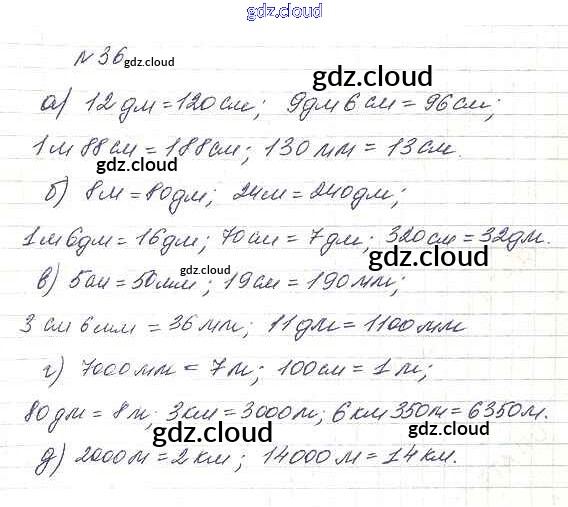 gdz.cloud
№36 gdz.cloud
gdz.cloud
а) 12 дм = 120 см; 9 дм 6 см = 96 см;
1 м 88 см = 188 см; 130 мм = 13 см.
gdz.cloud
б) 8 м = 80 дм; 24 м = 240 дм;
1 м 6 дм = 16 дм; 70 см = 7 дм; 320 см = 32 дм.
gdz.cloud gdz.cloud
в) 5 см = 50 мм; 19 см = 190 мм;
3 см 6 мм = 36 мм; 11 дм = 1100 мм
г) 7000 мм = 7 м; 100 см = 1 м;
80 дм = 8 м; 3 км = 3000 м; 6 км 350 м = 6350 м.
gdz.cloud gdz.cloud
д) 2000 м = 2 км; 14000 м = 14 км.